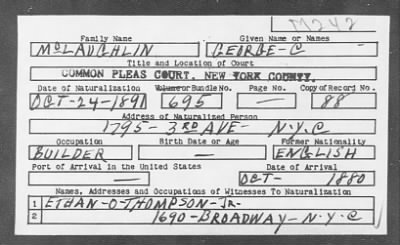 M242
Family Name Given Name or Names
McLAUGHLIN GEORGE-C
Title and Location of Court
COMMON PLEAS COURT, NEW YORK COUNTY.
Date of Naturalization Volume or Bundle No. Page No. Copy of Record No.
OCT-24-1891 695 — 88
Address of Naturalized Person
1795-3RD AVE- N-Y-C
Occupation Birth Date or Age Former Nationality
BUILDER — ENGLISH
Port of Arrival in the United States Date of Arrival
OCT- 1880
Names, Addresses and Occupations of Witnesses To Naturalization
1 ETHAN-O-THOMPSON-JR-
2 1690-BROADWAY-N-Y-C